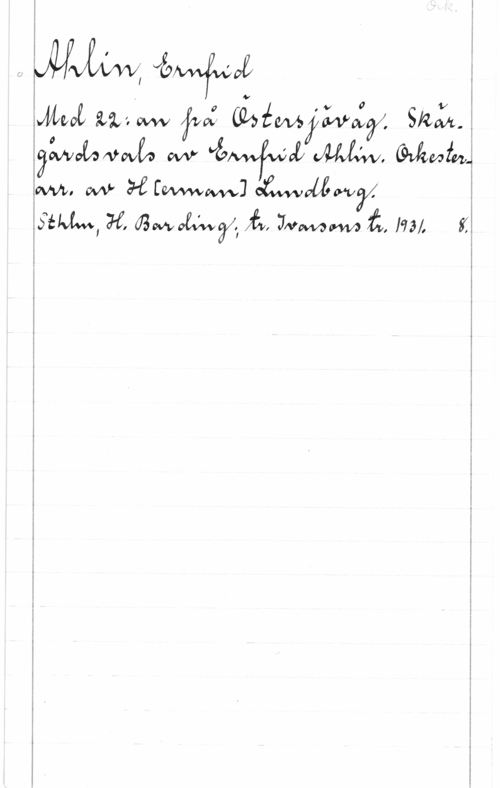 Ork.
Ahlin, Ernfrid
Med 22:an på Östersjövåg. Skär-
gårdsvals av Ernfrid Ahlin. Orkester-
arr. av H[erman] Lundborg.
Sthlm, H. Barding; tr. Ivarsons tr. 1931. 8.